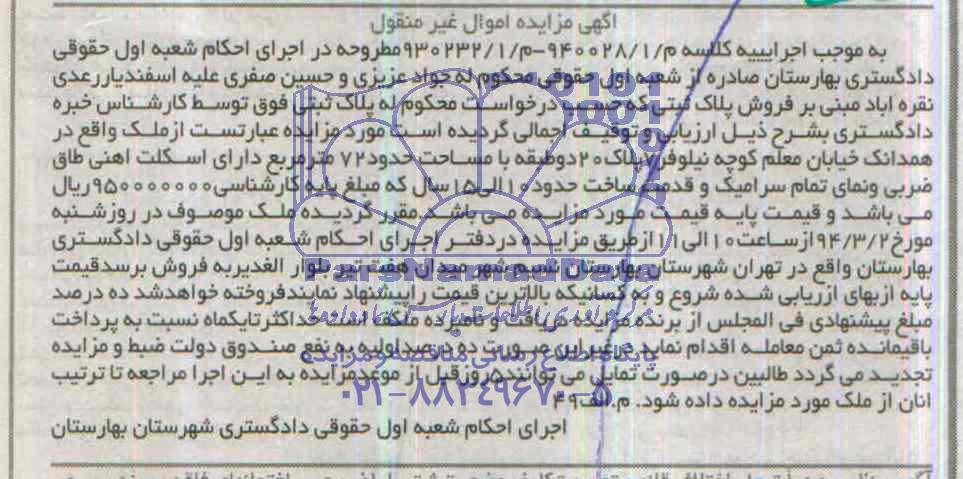 آگهی مزایده اموال غیر منقول
به موجب اجراییه کلاسه م/۹۴۰۰۲۸/۱-م/۹۳۰۲۳۲/۱مطروحه در اجرای احکام شعبه اول حقوقی
دادگستری بهارستان صادره از شعبه اول حقوقی محکوم له جواد عزیزی و حسین صفری علیه اسفندیاررعدی
نقره اباد مبنی بر فروش پلاک ثبتی که حسب درخواست محکوم له پلاک ثبتی فوق توسط کارشناس خبره
دادگستری بشرح ذیل ارزیابی وتوقیف اجمالی گردیده است مورد مزایده عبارتست ازملک واقع در
همدانک خیابان معلم کوچه نیلوفر۷پلاک۲۰دوطبقه با مساحت حدود۷۲ مترمربع دارای اسکلت اهنی طاق
ضربی ونمای تمام سرامیک و قدمت ساخت حدود۱۰الی۱۵سال که مبلغ پایه کارشناسی۹۵۰۰۰۰۰۰۰ریال
می باشد و قیمت پایه قیمت مورد مزایده می باشد.مقرر گردیده ملک موصوف در روزشنبه
مورخ۹۴/۳/۲ازساعت۱۰الی۱۱ازطریق مزایده دردفتر اجرای احکام شعبه اول حقوقی دادگستری
بهارستان واقع در تهران شهرستان بهارستان نسیم شهر میدان هفت تیر بلوار الغدیربه فروش برسدقیمت
پایه ازبهای ارزیابی شده شروع و به کسانیکه بالاترین قیمت راپیشنهاد نمایندفروخته خواهدشد ده درصد
مبلغ پیشنهادی فی المجلس از برنده مزایده دریافت و نامبرده مکلف است حداکثرتایکماه نسبت به پرداخت
باقیمانده ثمن معامله اقدام نماید درغیر این صورت ده درصداولیه به نفع صندوق دولت ضبط و مزایده
تجدید می گردد طالبین درصورت تمایل می توانند۵روزقبل از موعدمزایده به این اجرا مراجعه تا ترتیب
انان از ملک مورد مزایده داده شود. م.الف۴۹
اجرای احکام شعبه اول حقوقی دادگستری شهرستان بهارستان
ParsNamadData
پایگاه اطلاع رسانی مناقصه و مزایده
۰۲۱-۸۸۲۴۹۶۷۰-۵